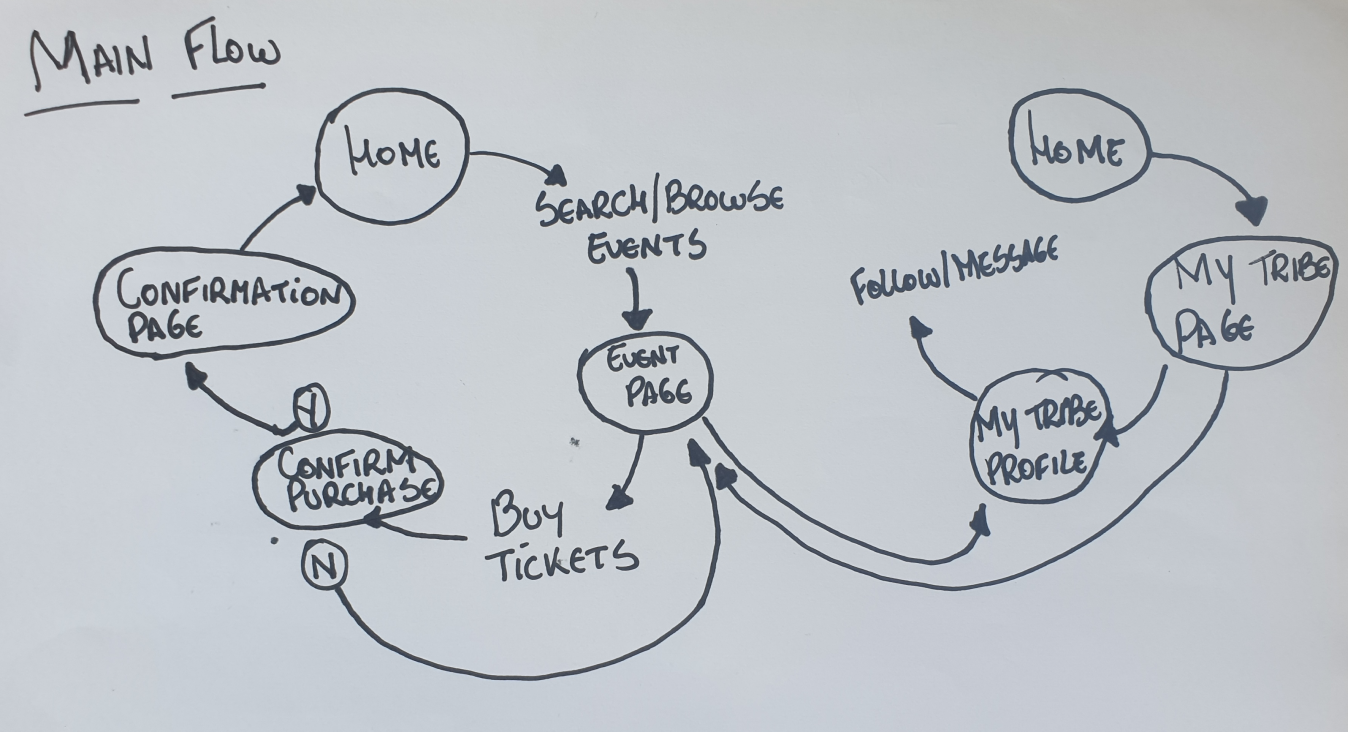 MAIN FLOW
HOME
SEARCH/BROWSE
EVENTS
EVENT
PAGE
BUY
TICKETS
CONFIRM
PURCHASE
Y
N
CONFIRMATION
PAGE
HOME
MY TRIBE
PAGE
MY TRIBE
PROFILE
FOLLOW/MESSAGE